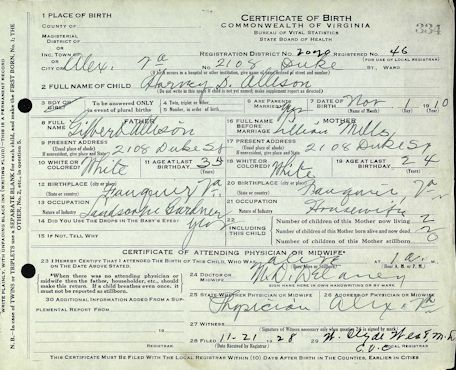 1 PLACE OF BIRTH
CERTIFICATE OF BIRTH
COMMONWEALTH OF VIRGINIA
BUREAU OF VITAL STATISTICS
STATE BOARD OF HEALTH
334
COUNTY OF
MAGISTERIAL DISTRICT OF
OR
INC. TOWN OF
OR
CITY OF Alex. Va
REGISTRATION DISTRICT No. 2020 REGISTERED No. 46
(FOR USE OF LOCAL REGISTRAR)
No. 2108 Duke ST., WARD
(If birth occurs in a hospital or other institution, give name of same instead of street and number)
2 FULL NAME OF CHILD Harvey D. Allison
3 BOY OR GIRL?
To be ANSWERED ONLY in event of plural births
4 Twin, triplet or other
5 Number, in order of birth
6 ARE PARENTS MARRIED? yes
7 DATE OF BIRTH Nov 1 1910
FATHER
8 FULL NAME Gilbert Allison
9 PRESENT ADDRESS 2108 Duke St
10 WHITE OR COLORED? White
11 AGE AT LAST BIRTHDAY 34
12 BIRTHPLACE (city or place) Fauquier Va.
13 OCCUPATION
Nature of Industry Landscape Gardner
14 DID YOU USE THE DROPS IN THE BABY'S EYES? yes
15 IF NOT, TELL WHY
MOTHER
16 FULL NAME BEFORE MARRIAGE Lillian Mills
17 PRESENT ADDRESS 2108 Duke St
18 WHITE OR COLORED? White
19 AGE AT LAST BIRTHDAY 24
20 BIRTHPLACE (city or place) Fauquier Va
21 OCCUPATION
Nature of Industry Housewife
22 INCLUDING THIS CHILD
Number of children of this Mother now living 2
Number of children of this Mother born alive and now dead
Number of children of this Mother stillborn
CERTIFICATE OF ATTENDING PHYSICIAN OR MIDWIFE
23 I HEREBY CERTIFY THAT I ATTENDED THE BIRTH OF THIS CHILD, WHO WAS
ON THE DATE ABOVE STATED.
*When there was no attending physician or midwife then the father, householder, etc., should make this return. If a child breathes even once, it must not be reported as stillborn.
24 DOCTOR OR MIDWIFE
SIGN HERE IN OWN HANDWRITING OR BY MARK
25 STATE WHETHER PHYSICIAN OR MIDWIFE Physician
26 ADDRESS OF PHYSICIAN OR MIDWIFE Alex Va
27 WITNESS
(Signature of Witness necessary only when number 24 is signed by mark)
28 Filed 11-21-28 W. Clyde West, M.D.
(Date Received by Registrar)
30 ADDITIONAL INFORMATION ADDED FROM A SUPPLEMENTAL REPORT
THIS CERTIFICATE MUST BE FILED WITH THE LOCAL REGISTRAR WITHIN (10) DAYS AFTER BIRTH IN THE COUNTIES, EARLIER IN CITIES